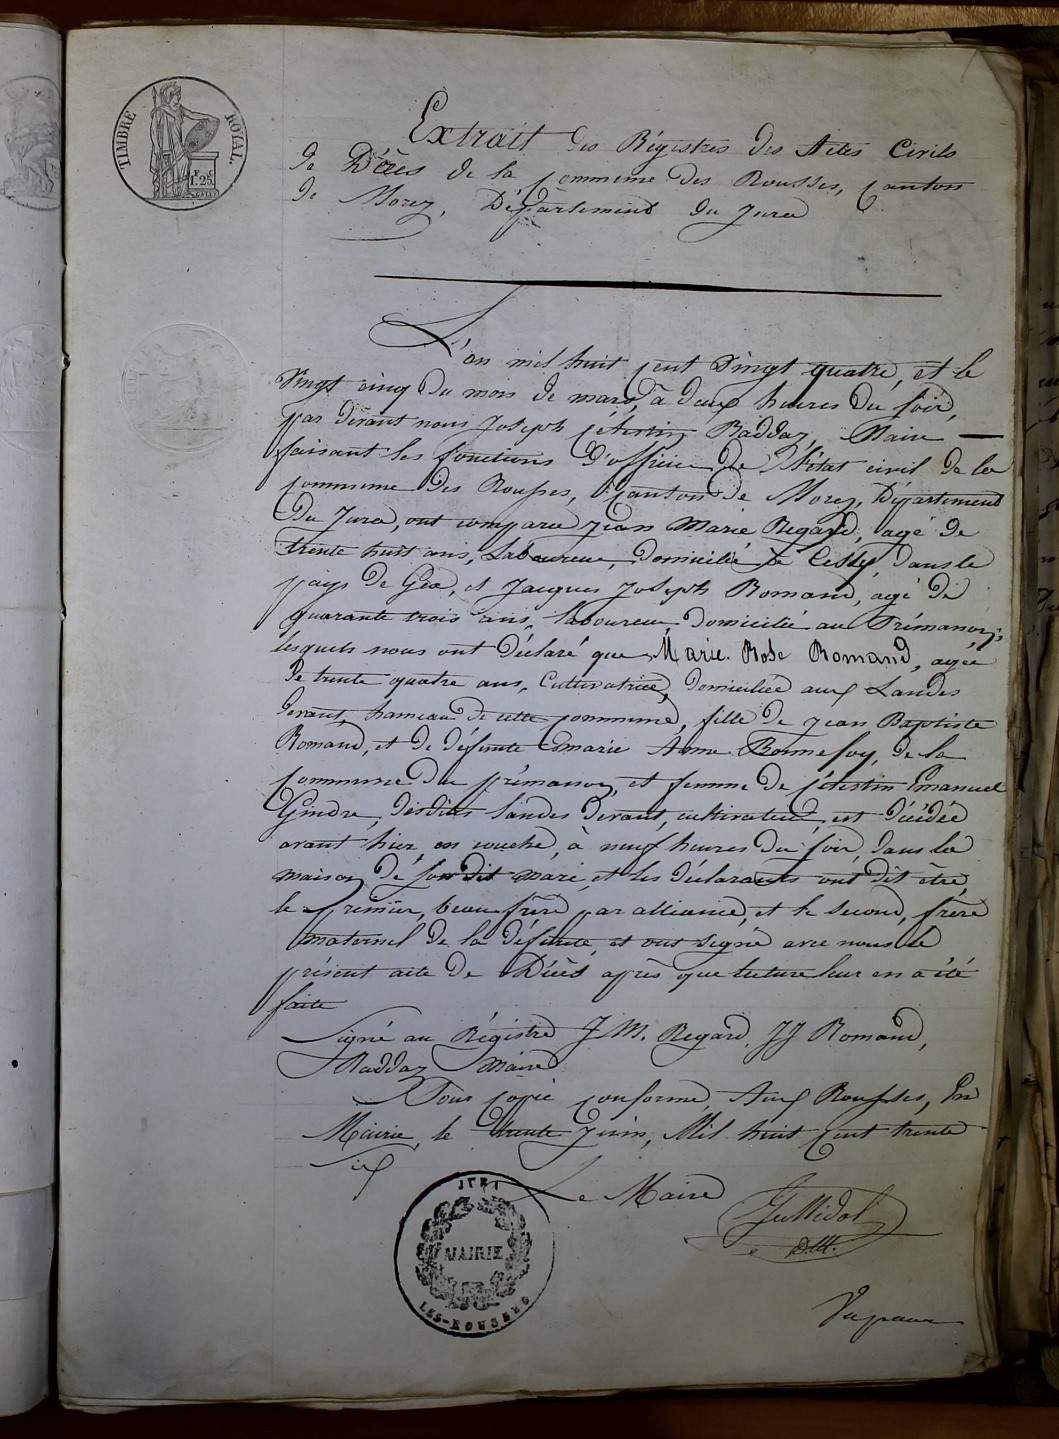 TIMBRE ROYAL
1F. 25C
Extrait des Régistres des Actes Civils
de Décès de la Commune des Rousses, Canton
de Morez, Département du Jura
L'an mil huit cent vingt quatre, et le
vingt cinq du mois de mars, à deux heures du soir,
par devant nous Joseph Célestin Baddaz, Maire
faisant les fonctions d'officier de l'état civil de la
Commune des Rousses, Canton de Morez, Département
du Jura, ont comparu Jean Marie Regard, agé de
trente huit ans, Laboureur, domicilié à Cessy, dans le
pays de Gex, et Jacques Joseph Romand, agé de
quarante trois ans, laboureur, domicilié au Prémanon,
lesquels nous ont déclaré que Marie Rose Romand, agée
de trente quatre ans, Cultivatrice, domiciliée aux Landes
devant, hameau de cette commune, fille de Jean Baptiste
Romand, et de défunte Marie Anne Bonnefoy, de la
Commune du prémanon, et femme de Célestin Emanuel
Gindre, desdites Landes devant, cultivateur, est décédée
avant hier, en couche, à neuf heures du soir, dans la
maison de son dit mari, et les déclarants ont dit être,
le premier, beau frère par alliance, et le second, frère
maternel de la défunte, et ont signé avec nous le
présent acte de Décès après que lecture leur en a été
faite
Signé au Régistre J M. Regard, JJ Romand,
Baddaz Maire
Pour copie conforme, Aux Rousses, En
Mairie, le trente Juin, Mil huit cent trente
six
Le Maire
JURA
MAIRIE
LES-ROUSSES